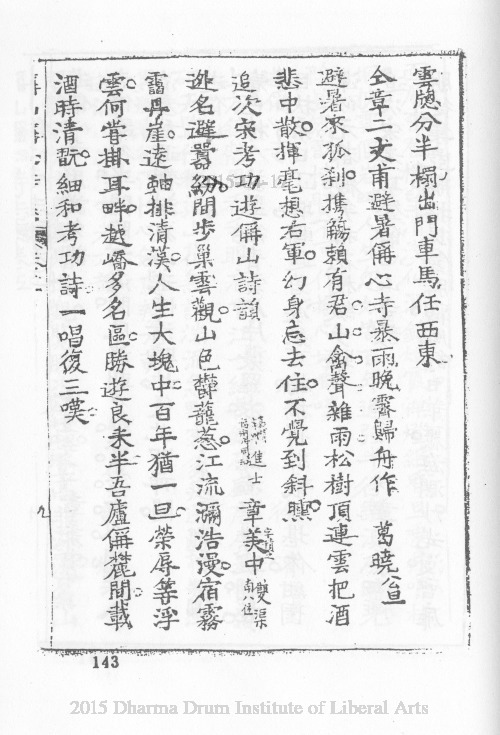 雲牕分半榻出門車馬任西東
仝章二丈甫避暑偁心寺暴雨晚霽歸舟作 葛曉
避暑來孤刹攜觴賴有君山禽聲雜雨松樹頂連雲把酒
悲中散揮毫想右軍幻身忘去住不覺到斜曛
追次宋考功遊偁山詩韻 進士 章美中
逃名避囂紛間步巢雲觀山色鬱蘢葱江流瀰浩漫宿霧
靄丹崖遠軸排清漢人生大塊中百年猶一旦榮辱等浮
雲何肯掛耳畔越嶠多名區勝遊良未半吾廬偁麓間載
酒時清翫細和考功詩一唱復三嘆
九
143
2015 Dharma Drum Institute of Liberal Arts